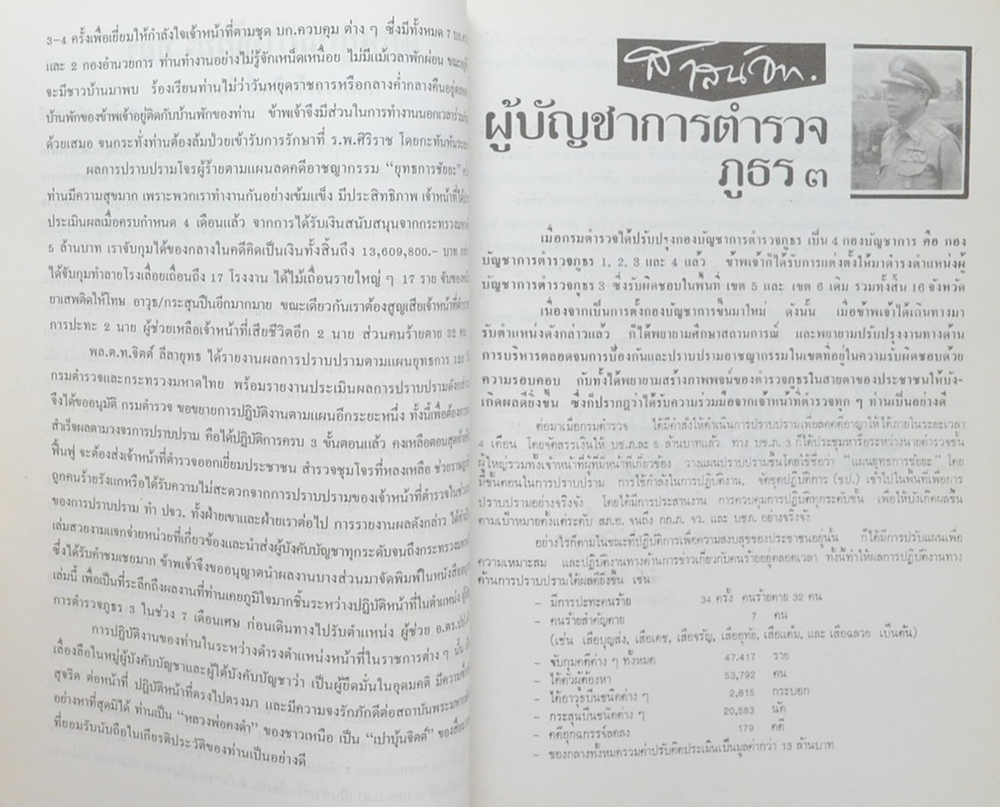 3-4 ครั้งเพื่อเยี่ยมให้กำลังใจเจ้าหน้าที่ตามชุด บก.ควบคุม ต่าง ๆ ซึ่งมีทั้งหมด 7
และ 2 กองอำนวยการ ท่านทำงานอย่างไม่รู้จักเหน็ดเหนื่อย ไม่มีแม้เวลาพักผ่อน
จะมีชาวบ้านมาพบ ร้องเรียนท่านไม่ว่าวันหยุดราชการหรือกลางค่ำกลางคืน
บ้านพักของข้าพเจ้าอยู่ติดกับบ้านพักของท่าน ข้าพเจ้าจึงมีส่วนในการทำงานนอกเวลา
ด้วยเสมอ จนกระทั่งท่านต้องล้มป่วยเข้ารับการรักษาที่ ร.พ.ศิริราช โดยกะทันหัน
ผลการปราบปรามโจรผู้ร้ายตามแผนลดคดีอาชญากรรม “ยุทธการชัยยะ”
ท่านมีความสุขมาก เพราะพวกเราทำงานกันอย่างเข้มแข็ง มีประสิทธิภาพ เจ้าหน้าที่
ประเมินผลเมื่อครบกำหนด 4 เดือนแล้ว จากการได้รับเงินสนับสนุนจากกระทรวง
5 ล้านบาท เราจับกุมได้ของกลางในคดีคิดเป็นเงินทั้งสิ้นถึง 13,609,800.- บาท
ได้จับกุมทำลายโรงเลื่อยเถื่อนถึง 17 โรงงาน ได้ไม้เถื่อนรายใหญ่ ๆ 17 ราย
ยาเสพติดให้โทษ อาวุธ/กระสุนปืนอีกมากมาย ขณะเดียวกันเราต้องสูญเสียเจ้าหน้าที่
การปะทะ 2 นาย ผู้ช่วยเหลือเจ้าหน้าที่เสียชีวิตอีก 2 นาย ส่วนคนร้ายตาย 32
พล.ต.ท.จิตต์ ลีลายุทธ ได้รายงานผลการปราบปรามตามแผนยุทธการ 120
กรมตำรวจและกระทรวงมหาดไทย พร้อมรายงานประเมินผลการปราบปราม
จึงได้ขออนุมัติ กรมตำรวจ ขอขยายการปฏิบัติงานตามแผนอีกระยะหนึ่ง ทั้งนี้เพื่อ
สำเร็จผลตามวงจรการปราบปราม คือได้ปฏิบัติการครบ 3 ขั้นตอนแล้ว คงเหลือตอน
ฟื้นฟู จะต้องส่งเจ้าหน้าที่ตำรวจออกเยี่ยมประชาชน สำรวจชุมโจรที่หลงเหลือ
ถูกคนร้ายรังแกหรือได้รับความไม่สะดวกจากการปราบปรามของเจ้าหน้าที่ตำรวจ
ของการปราบปราม ทำ ปจว. ทั้งฝ่ายเขาและฝ่ายเราต่อไป การรายงานผลดังกล่าว
เล่มสวยงามแจกจ่ายหน่วยที่เกี่ยวข้องและนำส่งผู้บังคับบัญชาทุกระดับจนถึงกระทรวง
ซึ่งได้รับคำชมเชยมาก ข้าพเจ้าจึงขออนุญาตนำผลงานบางส่วนมาจัดพิมพ์ในหนังสือ
เล่มนี้ เพื่อเป็นที่ระลึกถึงผลงานที่ท่านเคยภูมิใจมากชิ้นระหว่างปฏิบัติหน้าที่ในตำแหน่ง
การตำรวจภูธร 3 ในช่วง 7 เดือนเศษ ก่อนเดินทางไปรับตำแหน่ง ผู้ช่วย อ.ตร.
การปฏิบัติงานของท่านในระหว่างดำรงตำแหน่งหน้าที่ในราชการต่าง ๆ นั้น
เลื่องลือในหมู่ผู้บังคับบัญชาและผู้ใต้บังคับบัญชาว่า เป็นผู้ยึดมั่นในอุดมคติ มีความ
สุจริต ต่อหน้าที่ ปฏิบัติหน้าที่ตรงไปตรงมา และมีความจงรักภักดีต่อสถาบัน
อย่างหาที่สุดมิได้ ท่านเป็น “หลวงพ่อคงดำ” ของชาวเหนือ เป็น “เปาบุ้นจิตต์”
ที่ยอมรับนับถือในเกียรติประวัติของท่านเป็นอย่างดี
สาสน์จาก
ผู้บัญชาการตำรวจ
ภูธร ๓
เมื่อกรมตำรวจได้ปรับปรุงกองบัญชาการตำรวจภูธร เป็น 4 กองบัญชาการ คือ กอง
บัญชาการตำรวจภูธร 1, 2, 3 และ 4 แล้ว ข้าพเจ้าก็ได้รับการแต่งตั้งให้มาดำรงตำแหน่งผู้
บัญชาการตำรวจภูธร 3 ซึ่งรับผิดชอบในพื้นที่ เขต 5 และ เขต 6 เดิม รวมทั้งสิ้น 16 จังหวัด
เนื่องจากเป็นการตั้งกองบัญชาการขึ้นมาใหม่ ดังนั้น เมื่อข้าพเจ้าได้เดินทางมา
รับตำแหน่งดังกล่าวแล้ว ก็ได้พยายามศึกษาสถานการณ์ และพยายามปรับปรุงงานทางด้าน
การบริหารตลอดจนการป้องกันและปราบปรามอาชญากรรมในเขตที่อยู่ในความรับผิดชอบด้วย
ความรอบคอบ กับทั้งได้พยายามสร้างภาพพจน์ของตำรวจภูธรในสายตาของประชาชนให้บัง-
เกิดผลดียิ่งขึ้น ซึ่งก็ปรากฏว่าได้รับความร่วมมือจากเจ้าหน้าที่ตำรวจทุก ๆ ท่านเป็นอย่างดี
ต่อมาเมื่อกรมตำรวจ ได้มีคำสั่งให้ดำเนินการปราบปรามเพื่อลดคดีอาญาให้ได้ภายในระยะเวลา
4 เดือน โดยจัดสรรเงินให้ บช.ภ.ละ 5 ล้านบาทแล้ว ทาง บช.ภ. 3 ก็ได้ประชุมหารือระหว่างนายตำรวจชั้น
ผู้ใหญ่รวมทั้งเจ้าหน้าที่ผู้ที่มีหน้าที่เกี่ยวข้อง วางแผนปราบปรามขึ้นโดยใช้ชื่อว่า “แผนยุทธการชัยยะ” โดย
มีขั้นตอนในการปราบปราม การใช้กำลังในการปฏิบัติงาน, จัดชุดปฏิบัติการ (ชป.) เข้าไปในพื้นที่เพื่อการ
ปราบปรามอย่างจริงจัง โดยได้มีการประสานงาน การควบคุมการปฏิบัติทุกระดับชั้น เพื่อให้บังเกิดผลขึ้น
ตามเป้าหมายตั้งแต่ระดับ สภ.อ. จนถึง กก.ภ. จว. และ บชภ. อย่างจริงจัง
อย่างไรก็ตามในขณะที่ปฏิบัติการเพื่อความสงบสุขของประชาชนอยู่นั้น ก็ได้มีการปรับแผนเพื่อ
ความเหมาะสม และปฏิบัติงานทางด้านการข่าวเกี่ยวกับคนร้ายอยู่ตลอดเวลา ทั้งนี้ทำให้ผลการปฏิบัติงานทาง
ด้านการปราบปรามได้ผลดียิ่งขึ้น เช่น
- มีการปะทะคนร้าย 34 ครั้ง คนร้ายตาย 32 คน
- คนร้ายสำคัญตาย 7 คน
(เช่น เสือบุญส่ง, เสือเดช, เสือจรัญ, เสืออุทัย, เสือแต้ม, และ เสือฉลวย เป็นต้น)
- จับกุมคดีต่าง ๆ ทั้งหมด 47,417 ราย
- ได้ตัวผู้ต้องหา 53,792 คน
- ได้อาวุธปืนชนิดต่าง ๆ 2,815 กระบอก
- กระสุนปืนชนิดต่าง ๆ 20,583 นัด
- คดีอุกฉกรรจ์ลดลง 179 คดี
- ของกลางทั้งหมดรวมค่าปรับคิดประเมินเป็นมูลค่ากว่า 13 ล้านบาท